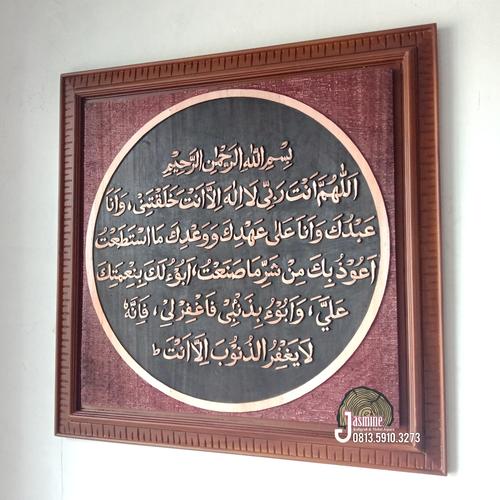 بِسْمِ اللهِ الرَّحْمٰنِ الرَّحِيْمِ
اَللّٰهُمَّ اَنْتَ رَبِّيْ لَا اِلٰهَ اِلَّا اَنْتَ خَلَقْتَنِيْ، وَاَنَا
عَبْدُكَ وَاَنَا عَلٰى عَهْدِكَ وَوَعْدِكَ مَا اسْتَطَعْتُ
اَعُوْذُ بِكَ مِنْ شَرِّ مَا صَنَعْتُ، اَبُوْءُ لَكَ بِنِعْمَتِكَ
عَلَيَّ، وَاَبُوْءُ بِذَنْبِيْ فَاغْفِرْ لِيْ، فَاِنَّهُ
لَا يَغْفِرُ الذُّنُوْبَ اِلَّا اَنْتَ
Jasmine
Kaligrafi & Mebel Jepara
0813.5910.3273